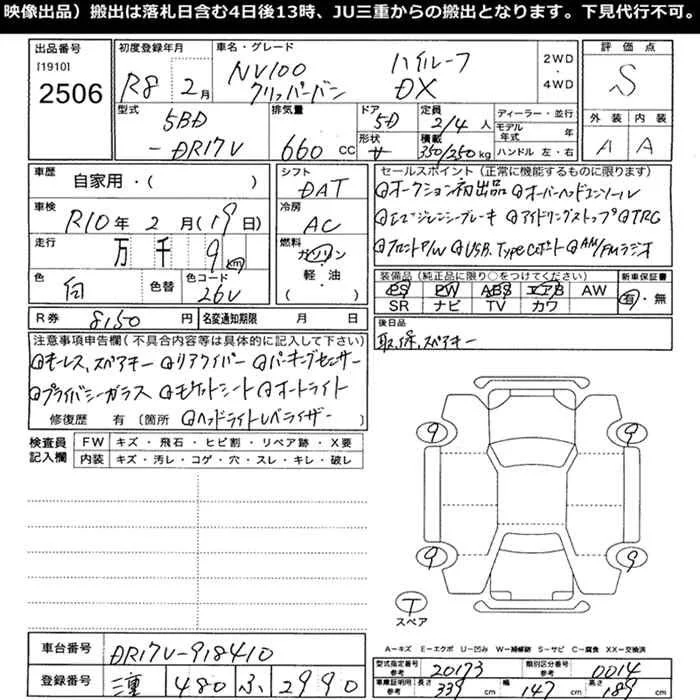 映像出品）搬出は落札日含む4日後13時、JU三重からの搬出となります。下見代行不可。
出品番号
[1910]
2506
初度登録年月
R8 2月
車名・グレード
NV100 ハイルーフ
クリッパーバン DX
2WD
・
4WD
評価点
S
外装 内装
A A
型式
5BD
-DR17V
排気量
660 cc
ドア
5D
形状
定員
2/4 人
積載
350/250 kg
ディーラー・並行
モデル年式 年
ハンドル 左・右
車歴
自家用・( )
車検
R10年 2月(19日)
走行
万 千 9 km
色
白
色替
色コード
26U
シフト
DAT
冷房
AC
燃料
ガソリン
・
軽・油
( )
セールスポイント(正常に機能するものに限ります)
@オークション初出品 @オーバーヘッドコンソール
@エマージェンシーブレーキ @アイドリングストップ @TRC
@フロントP/W @USB、TypeCポート @AM/FMラジオ
装備品(純正品に限り○をつけてください)
PS PW ABS エアB AW
SR ナビ TV カワ
新車保証書
有・無
R券 8150 円
名変通知期限 月 日
後日品
取、保、スペアキー
注意事項申告欄(不具合内容等は具体的に記入して下さい)
@キーレス、スペアキー @リアワイパー @パーキングセンサー
@プライバシーガラス @モケットシート @オートライト
修復歴 有(箇所 @ヘッドライトレベライザー )
検査員
記入欄
FW キズ・飛石・ヒビ割・リペア跡・X要
内装 キズ・汚レ・コゲ・穴・スレ・キレ・破レ
9 9
9 9
T
スペア
車台番号 DR17V-918410
登録番号 三重 480 ふ 2990
A-キズ E-エクボ U-凹み W-補修跡 S-サビ C-腐食 XX-交換済
型式指定番号 参考 20173
類別区分番号 参考 0014
車庫証明用 参考
長さ 339 cm
幅 147 cm
高さ 189 cm